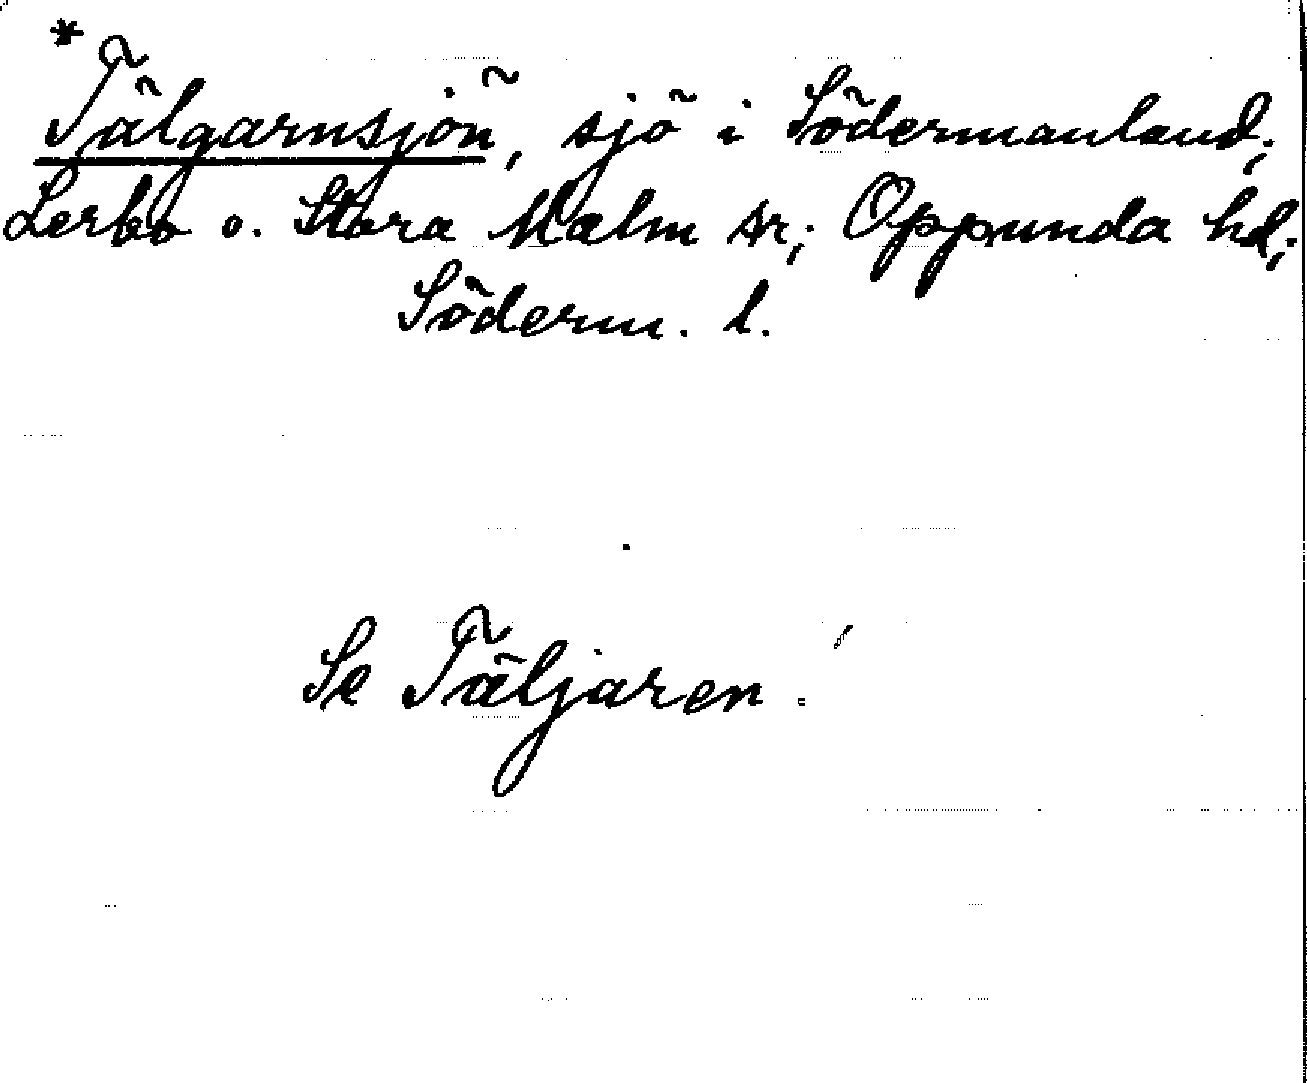 *Tälgarnsjön, sjö i Södermanland;
Lerbo o. Stora Malm sr; Oppunda hd;
Söderm. l.
Se Täljaren.